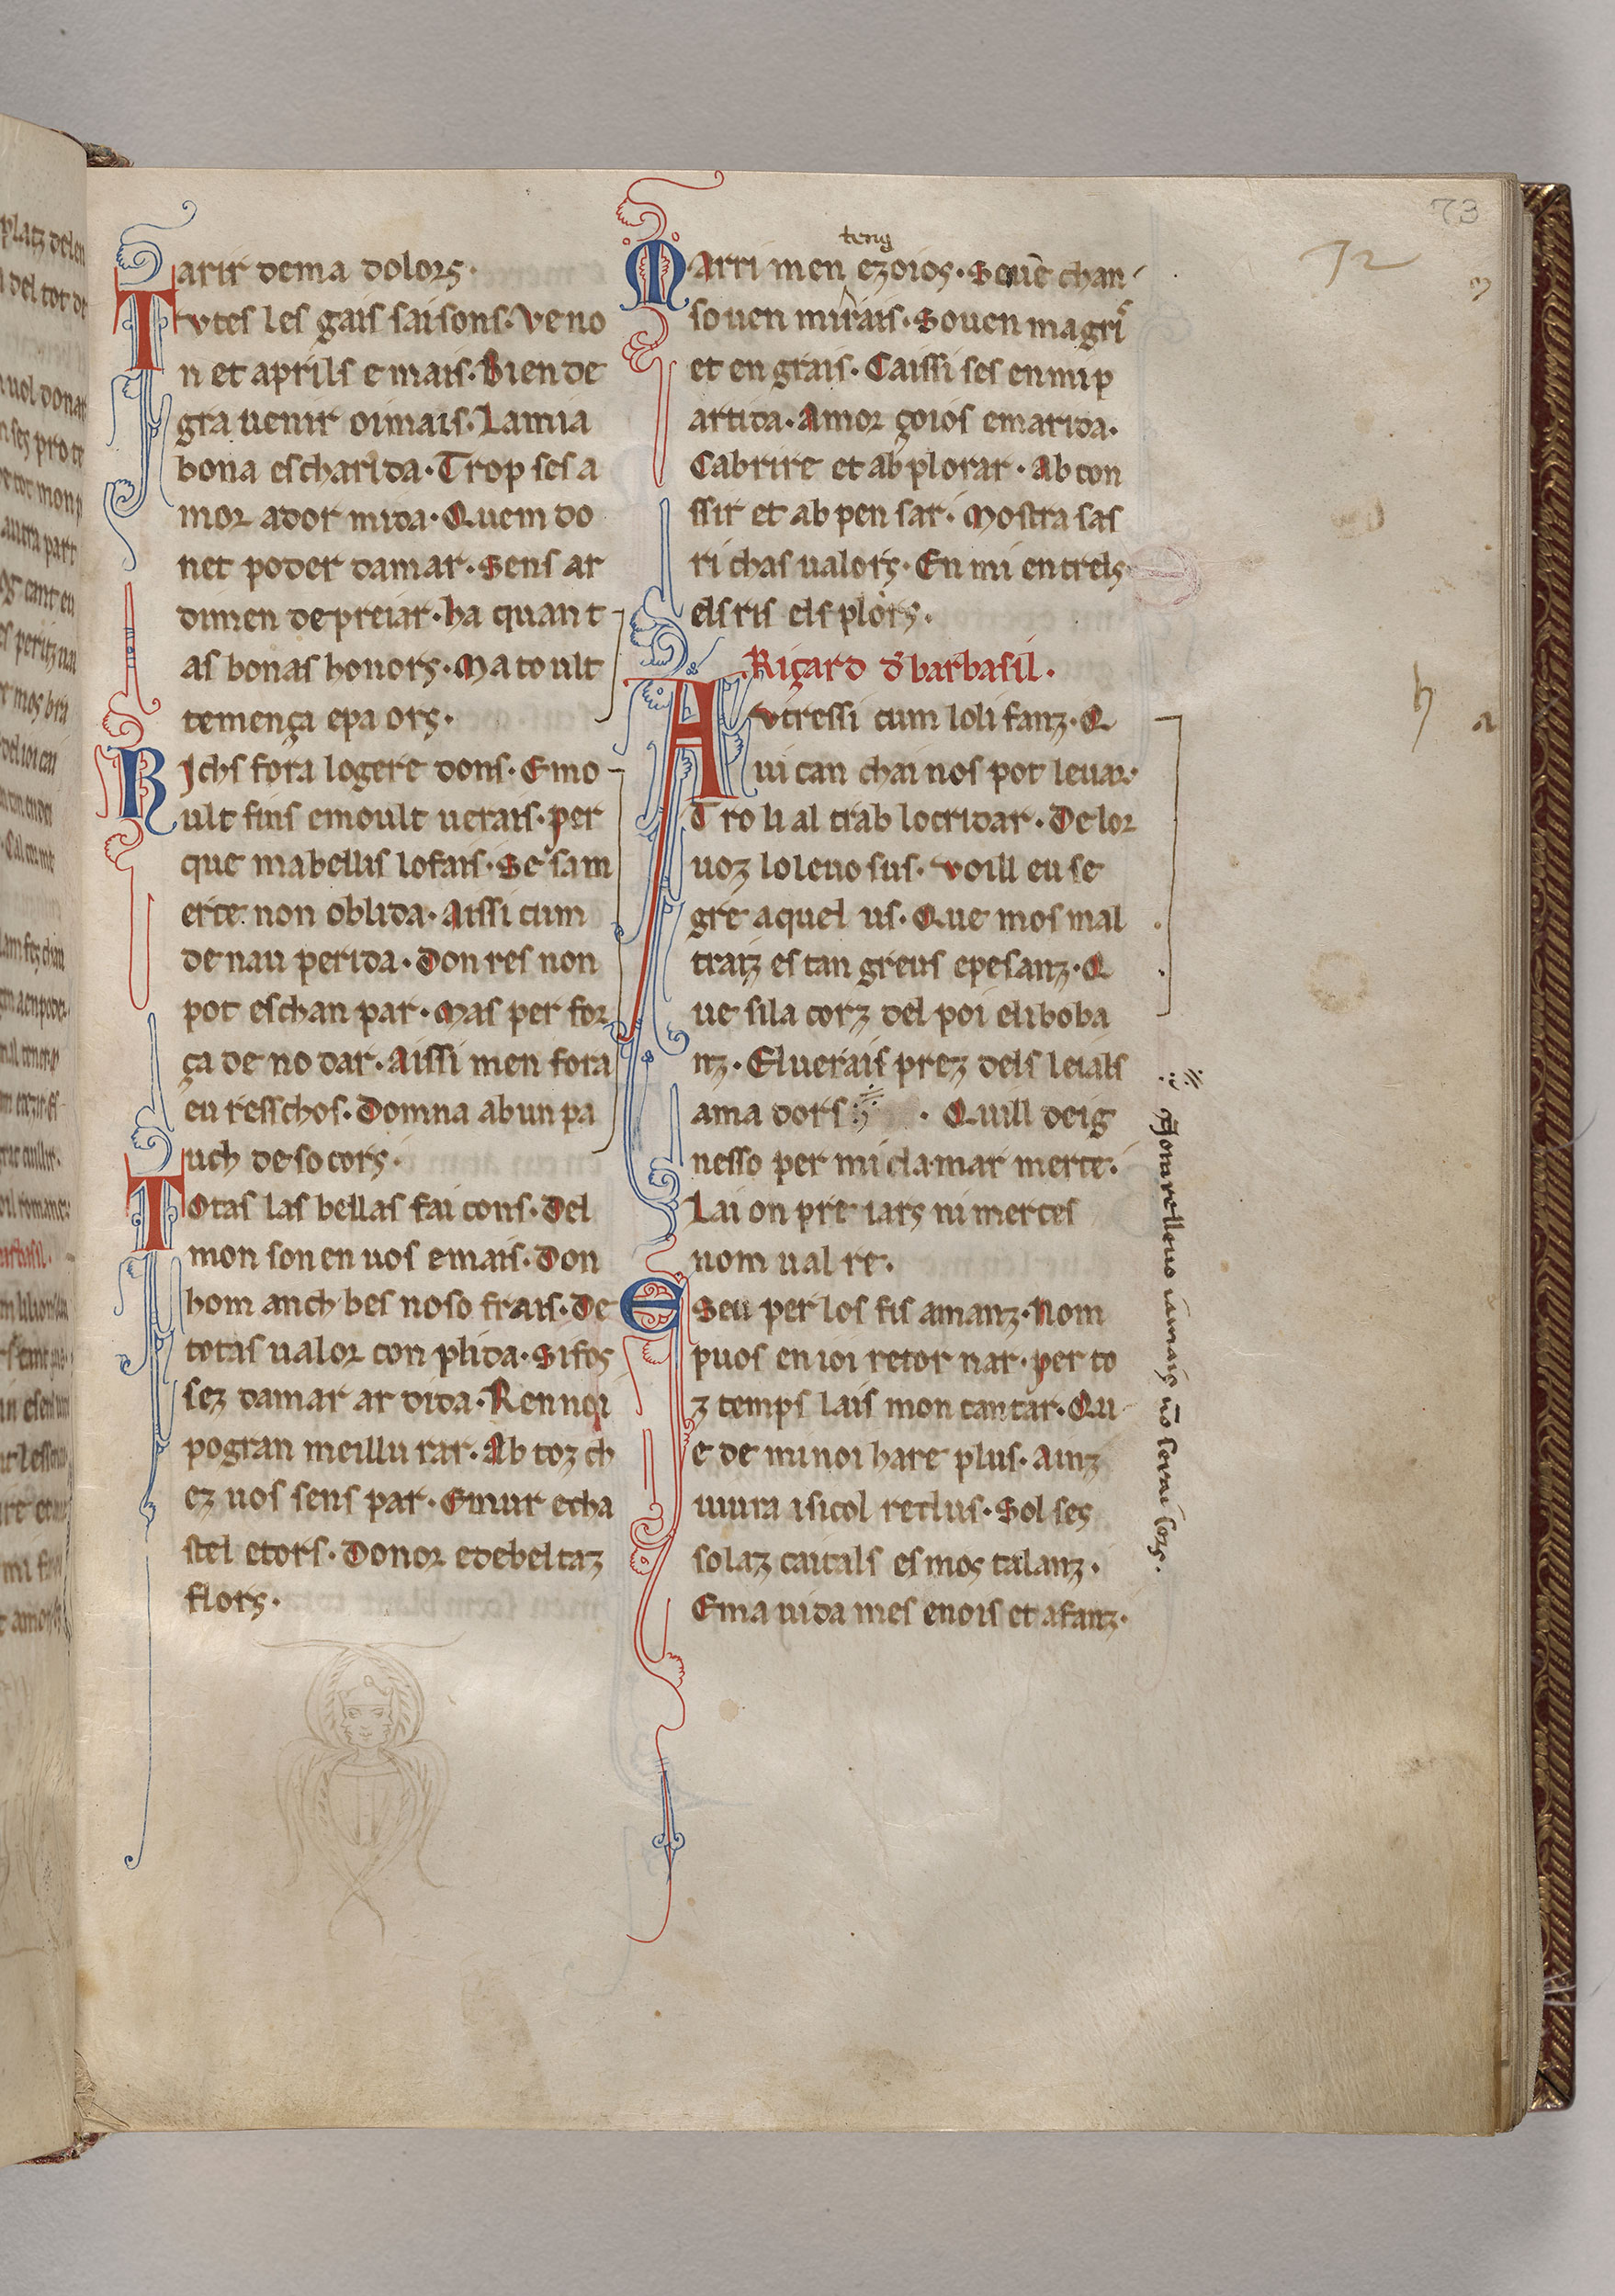 73
72
Garir dema dolors·
Tvtes les gais saisons· Ve no
n et aprils e mais· Bien de
gra uenir oimais· La mia
bona escharida· Trop ses a
mor ador mida· Quem do
net poder damar· Sens ar
dimen de preiar· ha quant
as bonas honors· Ma toult
temença epa ors·
Richs fora logere dons· Emo
ult fins emoult uerais· per
que mabellis lo fais· Se sam
erce non oblida· Aissi cum
de nau perida· Don res non
pot eschan par· Mas per for
ça de no dar· Aissi men fora
eu resschos· Domna ab un pa
uch de so cors·
Totas las bellas fai cons· Del
mon son en uos e mais· Don
hom anch bes noso frais· De
totas ualor con plida· Si fos
sez damar ar dida· Ren noi
pogran meillu rar· Ab toz ch
ez uos sens par· Emur echa
stel etors· Donor e de beltaz
flors·
teng
Marri men ezoios· Souē chan
so uen mirais· Souen magris
et en grais· Caissi ses en mi p
artida· Amor çoios e marida·
Cabrire et ab plorar· Ab con
ssir et ab pen sar· Mostra sas
ri chas ualors· En mi entrels
els ris els plors·
Riçard d̄ barbasil·
Avtressi cum loli fanz· Q
ui can chai nos pot leuar·
Tro li al trab lo cridar· De lor
uoz lo leuo sus· Voill eu se
gre aquel us· Que mos mal
traiz es tan greus epesanz· Q
ue si la corz del poi eli boba
nz· El uerais prez dels leials
ama dors · Quill deig
nesso per mi clamar merce·
Lai on pre iars ni merces
nom ual re·
E Seu per los fis amanz· Nom
puos en ioi retor nar· per to
z temps lais mon cantar· Qu
e de mi noi hare plus· Ainz
uiura isicol reclus· Sol ses
solaz caitals es mos talanz·
E ma uida mes enois et afanz·
h
a